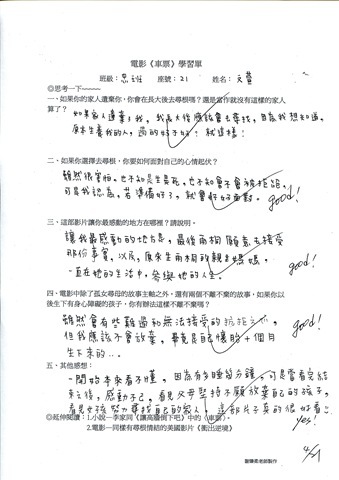 電影《車票》學習單
班級：忠班 座號：21 姓名：文萱
◎思考一下~~~~
一、如果你的家人遺棄你，你會在長大後去尋根嗎？還是當作就沒有這樣的家人
算了？
如果家人遺棄了我，我長大後應該會去尋找，因為我想知道，
原本生養我的人，過的好不好？就這樣！
二、如果你選擇去尋根，你要如何面對自己的心情起伏？
雖然很害怕，也不知是生是死，也不知會不會被拒絕，
可是我認為，若準備好了，就會好好面對。
good!
三、這部影片讓你最感動的地方在哪裡？請說明。
讓我最感動的地方是，最後兩個願意去接受
那份事實，以及，原來生兩個放親生媽媽，
一直在她的生活中，參與她的人生。
good!
四、電影中除了孤女尋母的故事主軸之外，還有兩個不離不棄的故事，如果你以
後生下有身心障礙的孩子，你有辦法這樣不離不棄嗎？
雖然會有些難過和無法接受的抗拒之心，
但我應該不會放棄，畢竟是自己懷胎十個月
生下來的…
good!
五、其他感想：
一開始本來看不懂，因為有多睡幾分鐘，可是當看完結
束之後，感動不已，看見父母堅持不願放棄自己的孩子，
看見女孩努力尋找自己的家人，這部片子真的很好看！
yes!
◎延伸閱讀：1.小說—李家同《讓高牆倒下吧》中的〈車票〉。
2.電影—同樣有尋根情結的美國影片《衝出逆境》
4/21